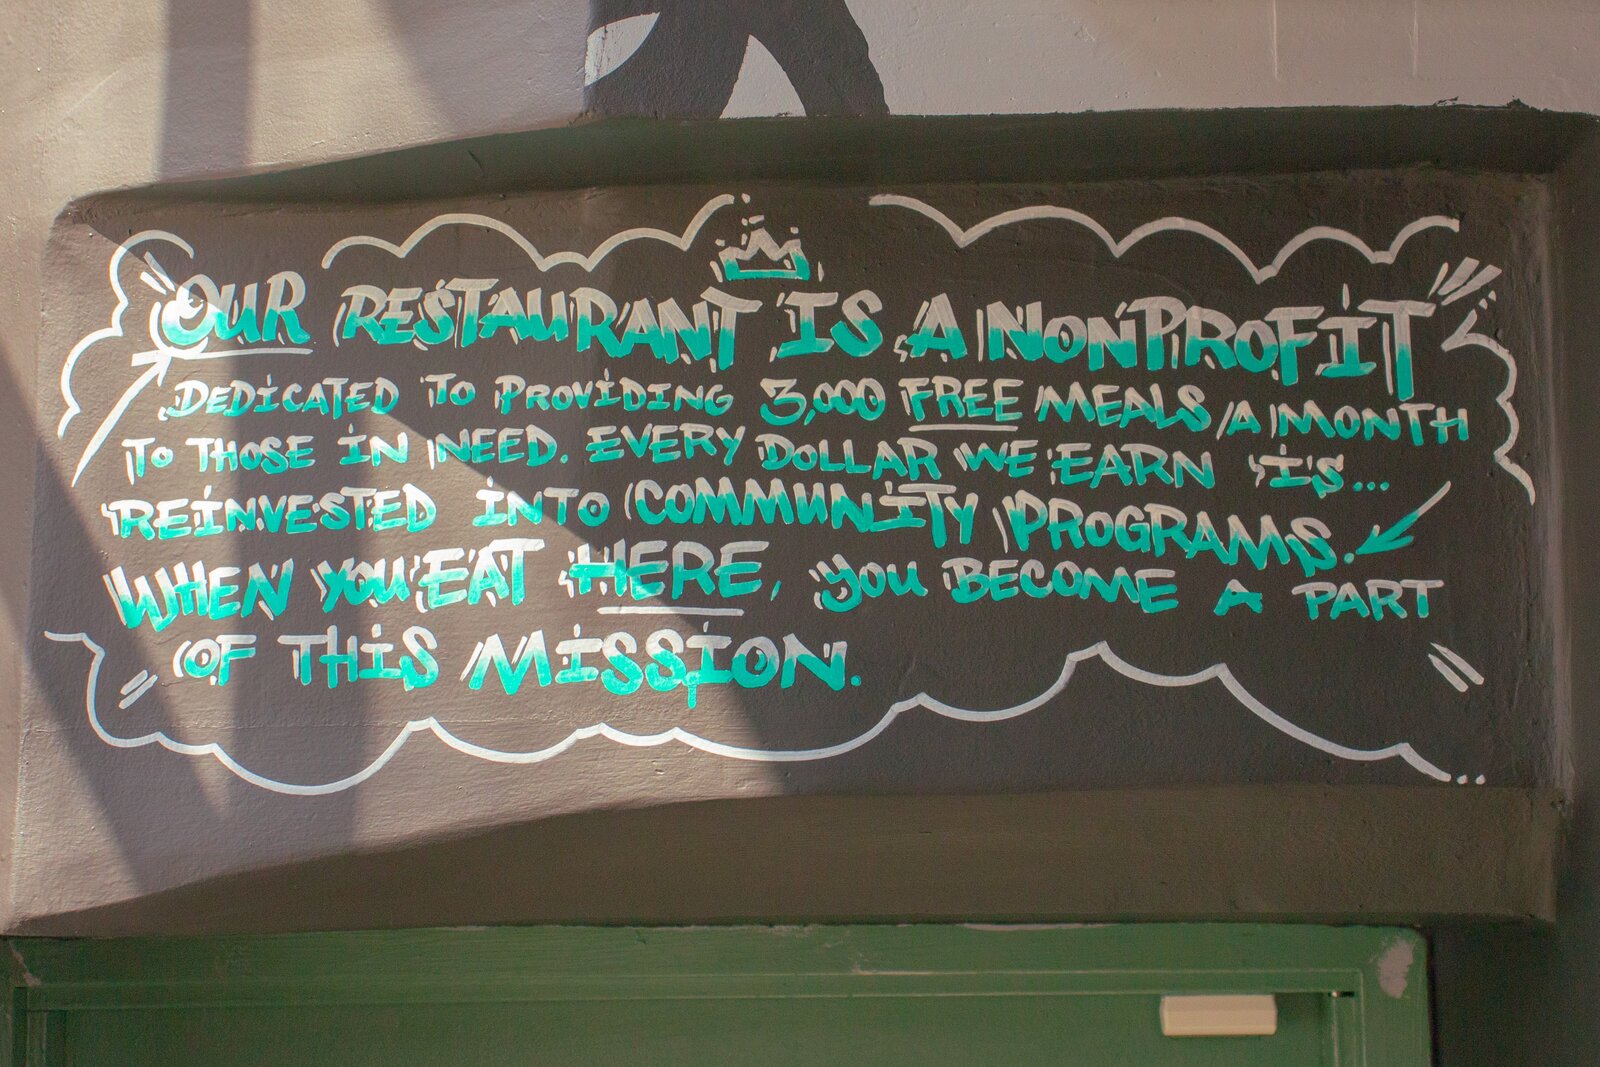 OUR RESTAURANT IS A NONPROFIT
DEDICATED TO PROVIDING 3,000 FREE MEALS A MONTH
TO THOSE IN NEED. EVERY DOLLAR WE EARN IS...
REINVESTED INTO COMMUNITY PROGRAMS.
WHEN YOU EAT HERE, YOU BECOME A PART
OF THIS MISSION.